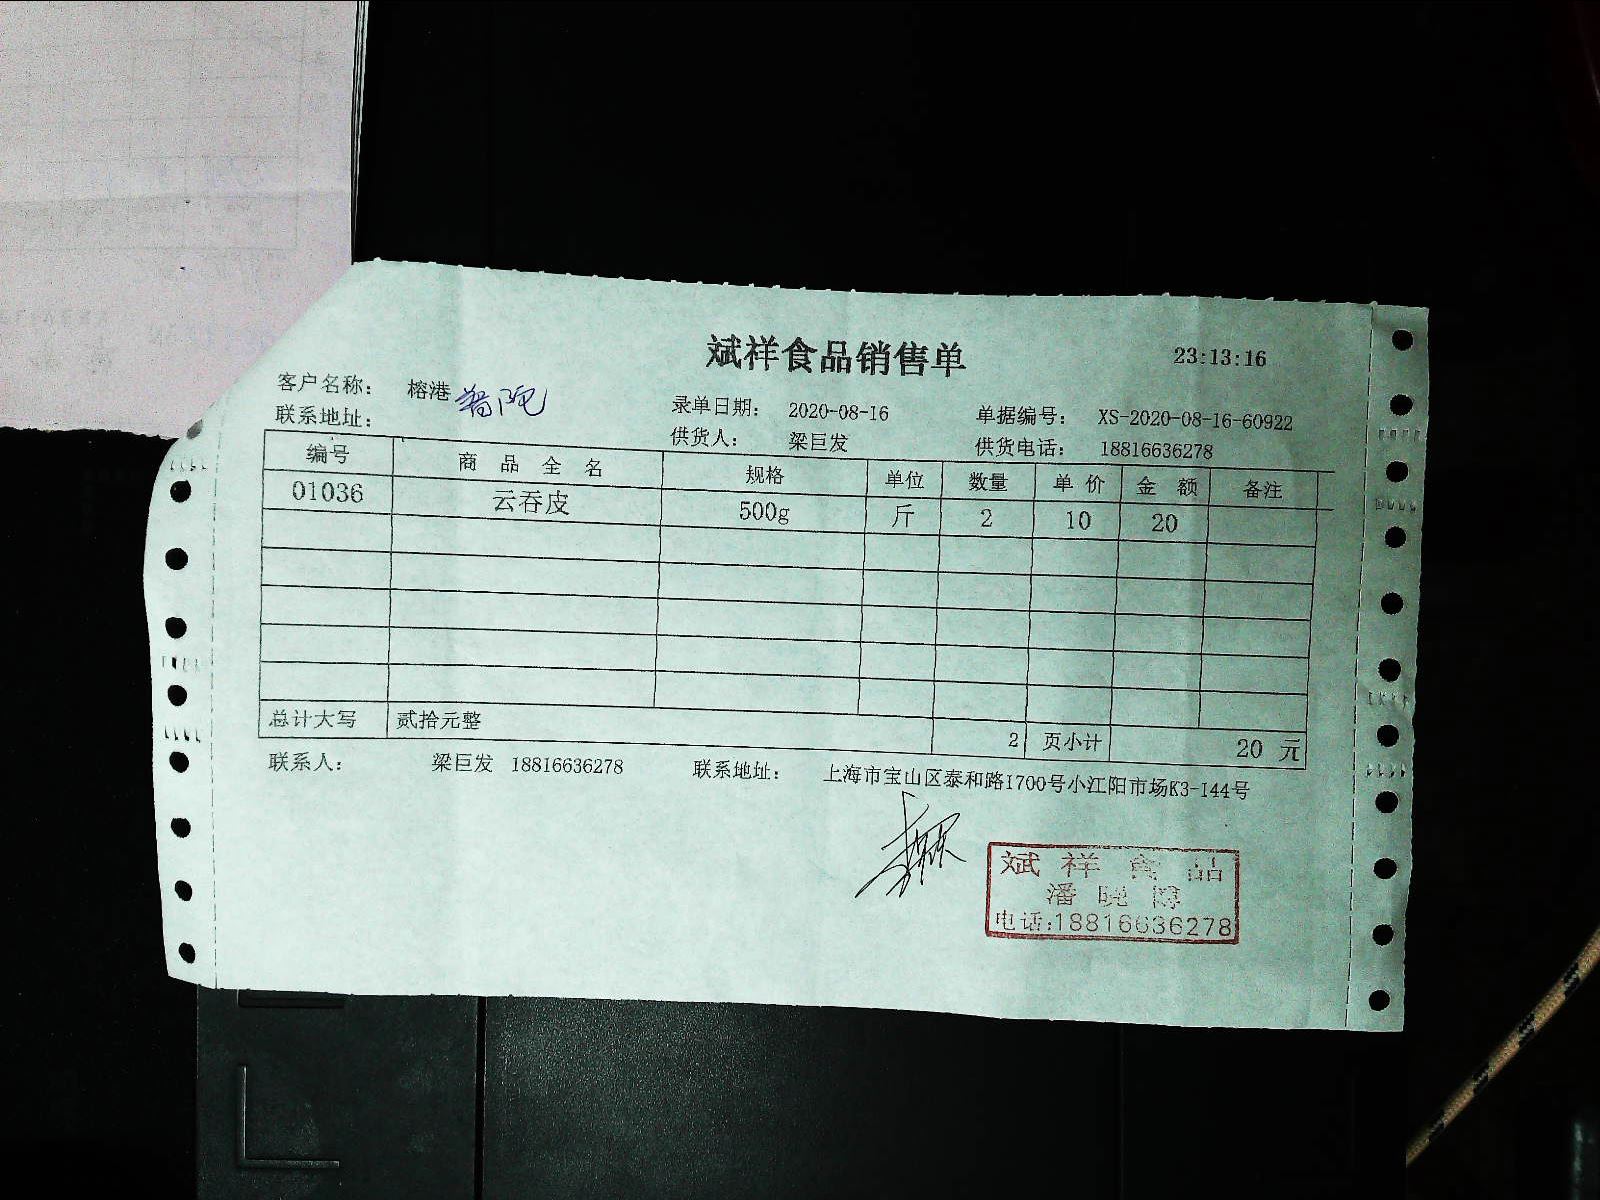 斌祥食品销售单 23:13:16
客户名称： 榕港 普陀
录单日期： 2020-08-16 单据编号： XS-2020-08-16-60922
联系地址：
供货人： 梁巨发 供货电话： 18816636278
编号 商品全名 规格 单位 数量 单价 金额 备注
01036 云吞皮 500g 斤 2 10 20
总计大写 贰拾元整 2 页小计 20 元
联系人： 梁巨发 18816636278 联系地址： 上海市宝山区泰和路1700号小江阳市场K3-144号
斌祥食品
潘晓博
电话:18816636278